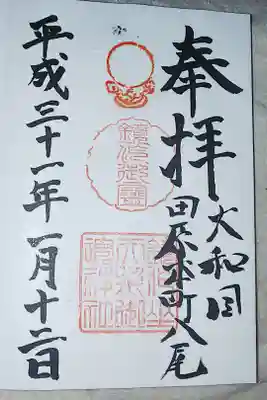 奉拝
大和国
田原本町八尾
鏡作坐
天照御
魂神社
平成三十一年一月十二日